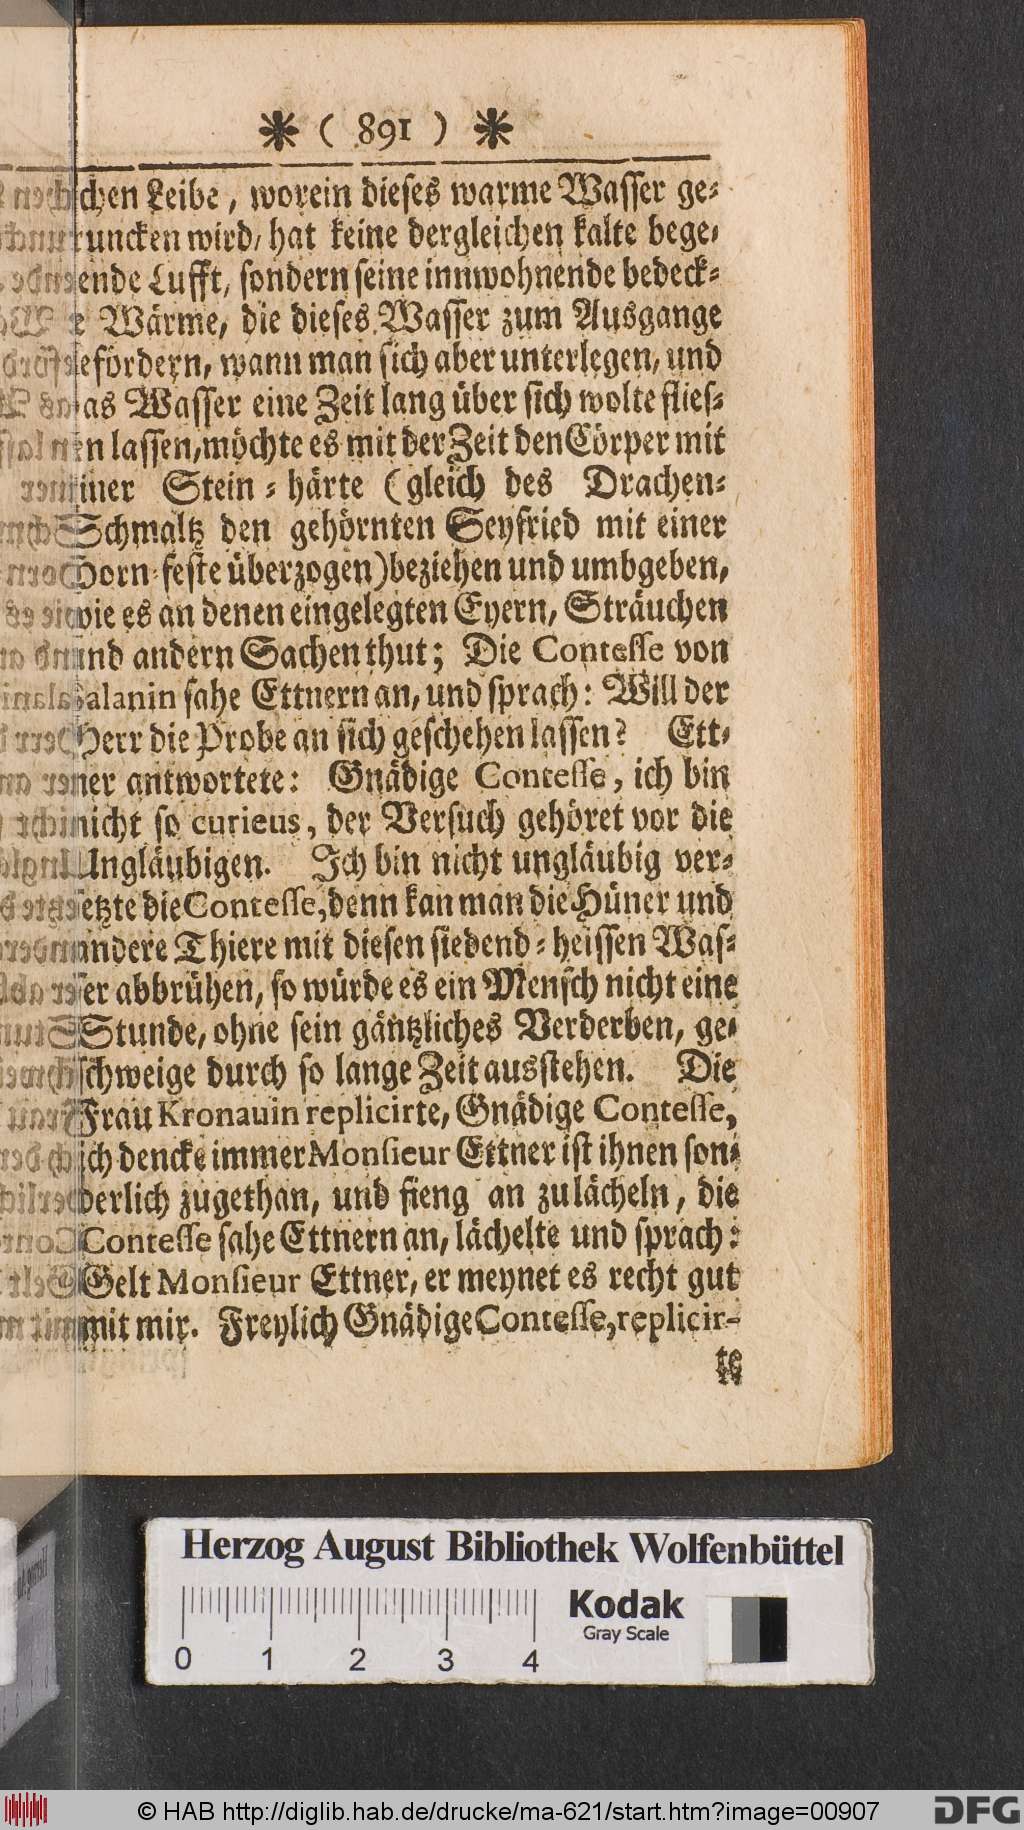 ✻ ( 891 ) ✻
chen Leibe, worein dieses warme Wasser ge-
runcken wird, hat keine dergleichen kalte bege-
ende Lufft, sondern seine innwohnende bedeck-
e Wärme, die dieses Wasser zum Ausgange
efördern, wann man sich aber unterlegen, und
as Wasser eine Zeit lang über sich wolte flies-
en lassen, möchte es mit der Zeit den Cörper mit
iner Stein-härte (gleich des Drachen-
Schmaltz den gehörnten Seyfried mit einer
Horn-feste überzogen) beziehen und umbgeben,
wie es an denen eingelegten Eyern, Sträuchen
und andern Sachen thut; Die Contesse von
Salanin sahe Ettnern an, und sprach: Will der
Herr die Probe an sich geschehen lassen? Ett-
ner antwortete: Gnädige Contesse, ich bin
nicht so curieus, der Versuch gehöret vor die
Ungläubigen. Ich bin nicht ungläubig ver-
setzte die Contesse, denn kan man die Hüner und
andere Thiere mit diesen siedend-heissen Was-
ser abbrühen, so würde es ein Mensch nicht eine
Stunde, ohne sein gäntzliches Verderben, ge-
schweige durch so lange Zeit ausstehen. Die
Frau Kronauin replicirte, Gnädige Contesse,
ich dencke immer Monsieur Ettner ist ihnen son-
derlich zugethan, und fieng an zu lächeln, die
Contesse sahe Ettnern an, lächelte und sprach:
Gelt Monsieur Ettner, er meynet es recht gut
mit mir. Freylich Gnädige Contesse, replicir-
te
Herzog August Bibliothek Wolfenbüttel
Kodak
Gray Scale
0 1 2 3 4
© HAB http://diglib.hab.de/drucke/ma-621/start.htm?image=00907
DFG